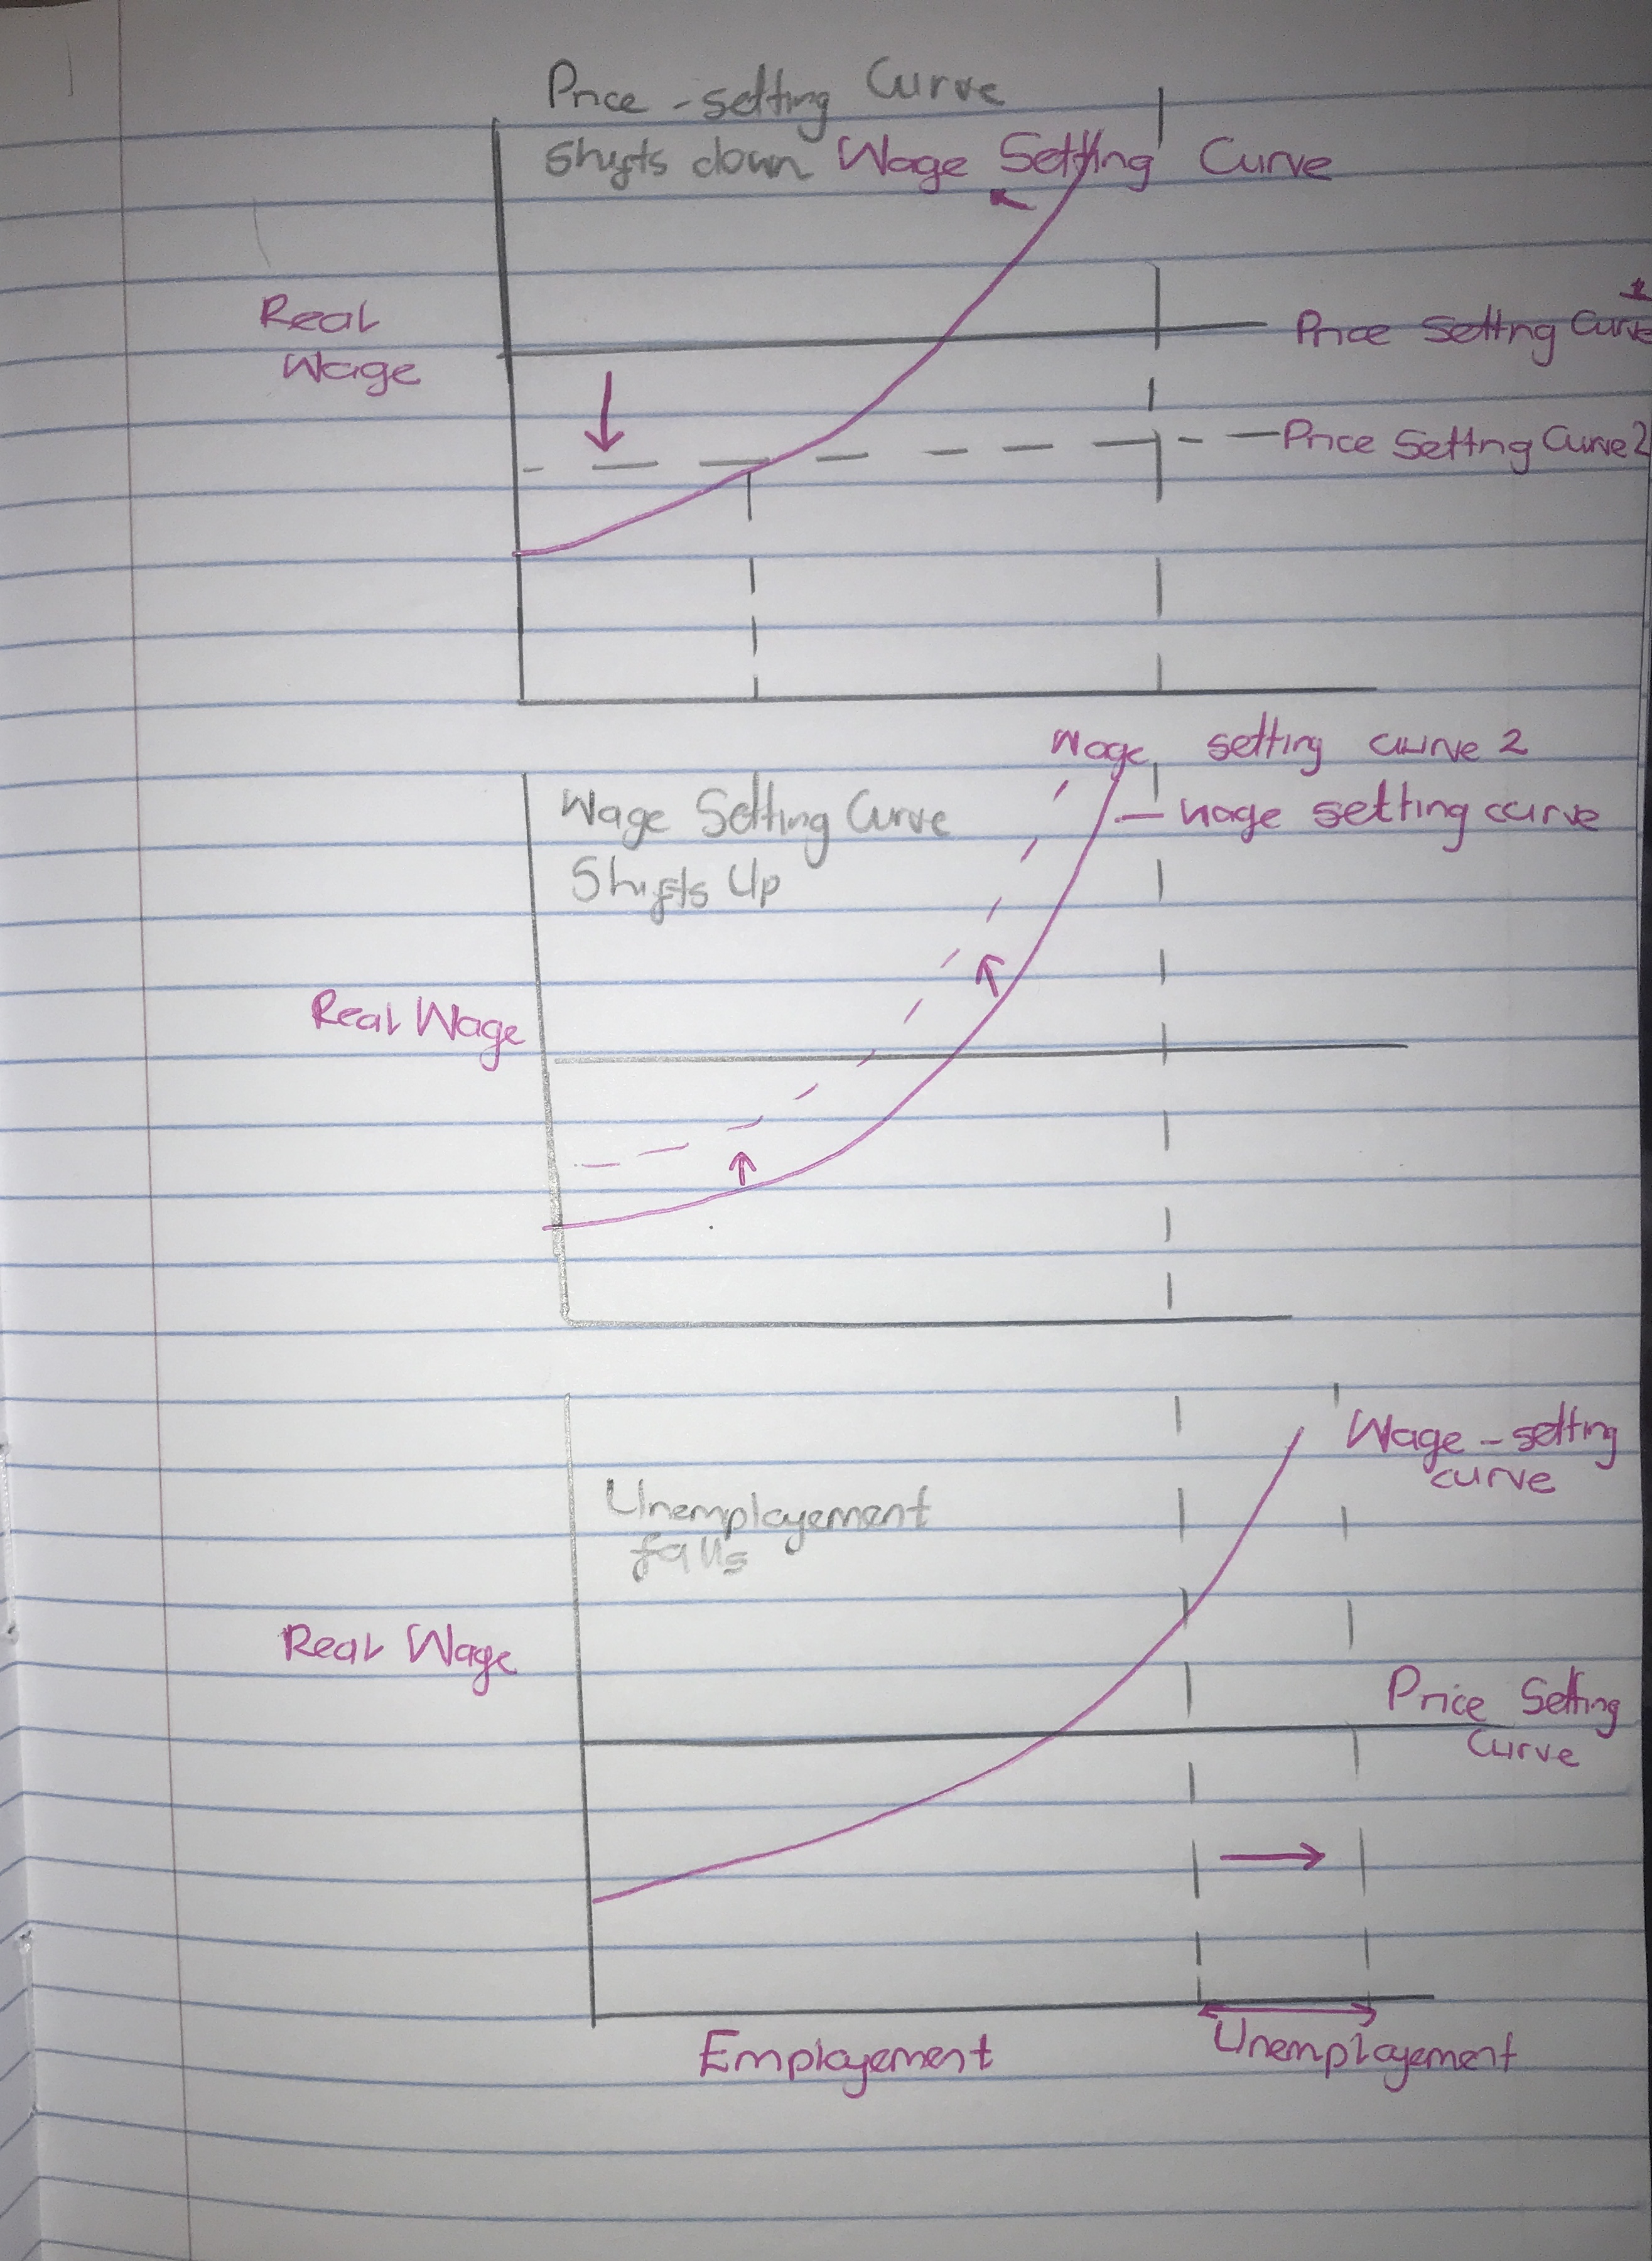 Price - setting Curve
Shifts down Wage Setting Curve
Real
Wage
Price Setting Curve 1
Price Setting Curve 2
Wage setting curve 2
Wage Setting Curve
Shifts Up
wage setting curve
Real Wage
Wage - setting
curve
Unemployement
falls
Real Wage
Price Setting
Curve
Employement
Unemployement